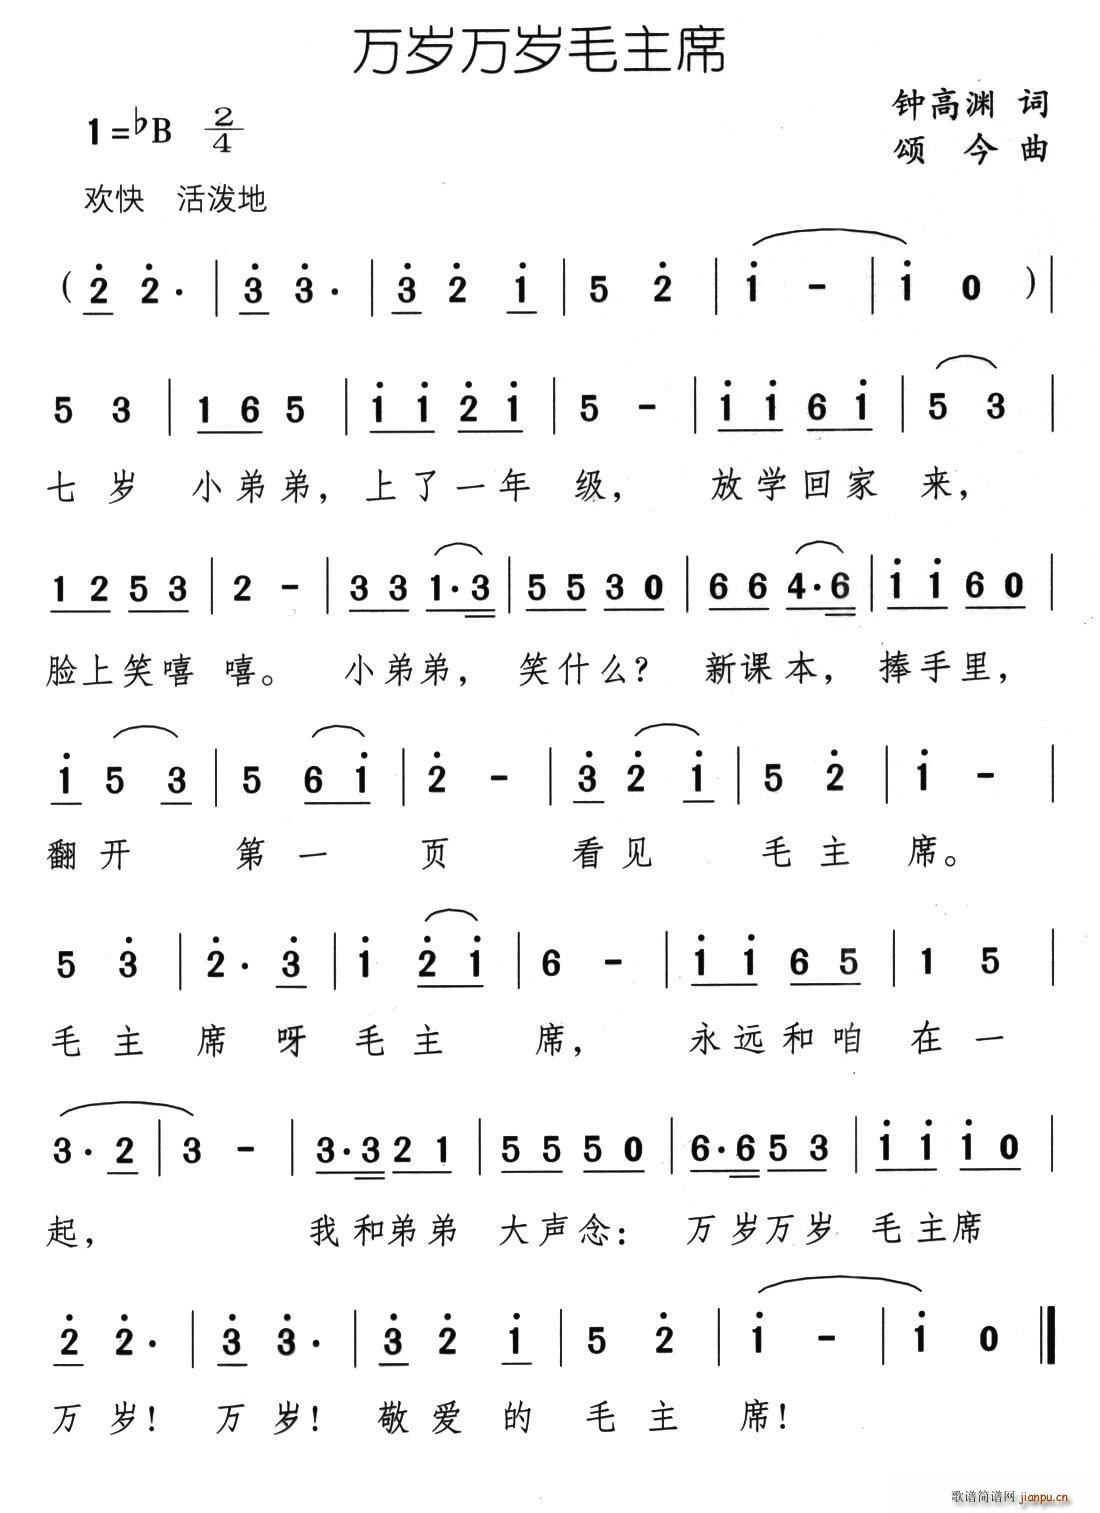 万岁万岁毛主席
1=♭B 2/4
钟高渊 词
颂 今 曲
欢快 活泼地
( 2̇ 2̇· | 3̇ 3̇· | 3̇ 2̇ 1̇ | 5 2̇ | 1̇ - | 1̇ 0 ) |
5 3 | 1 6 5 | 1̇ 1̇ 2̇ 1̇ | 5 - | 1̇ 1̇ 6 1̇ | 5 3 |
七 岁 小弟弟, 上了一年 级, 放学回家 来,
1 2 5 3 | 2 - | 3 3 1·3 | 5 5 3 0 | 6 6 4·6 | 1̇ 1̇ 6 0 |
脸上笑嘻 嘻。 小弟弟, 笑什么? 新课本, 捧手里,
1̇ 5 3 | 5 6 1̇ | 2̇ - | 3̇ 2̇ 1̇ | 5 2̇ | 1̇ - |
翻开 第一 页 看见 毛主 席。
5 3̇ | 2̇· 3̇ | 1̇ 2̇ 1̇ | 6 - | 1̇ 1̇ 6 5 | 1 5 |
毛主 席呀 毛主 席, 永远和咱 在一
3· 2 | 3 - | 3·3 2 1 | 5 5 5 0 | 6·6 5 3 | 1̇ 1̇ 1̇ 0 |
起, 我和弟弟 大声念: 万岁万岁 毛主席
2̇ 2̇· | 3̇ 3̇· | 3̇ 2̇ 1̇ | 5 2̇ | 1̇ - | 1̇ 0 ‖
万岁! 万岁! 敬爱的 毛主 席!
歌谱简谱网 jianpu.cn